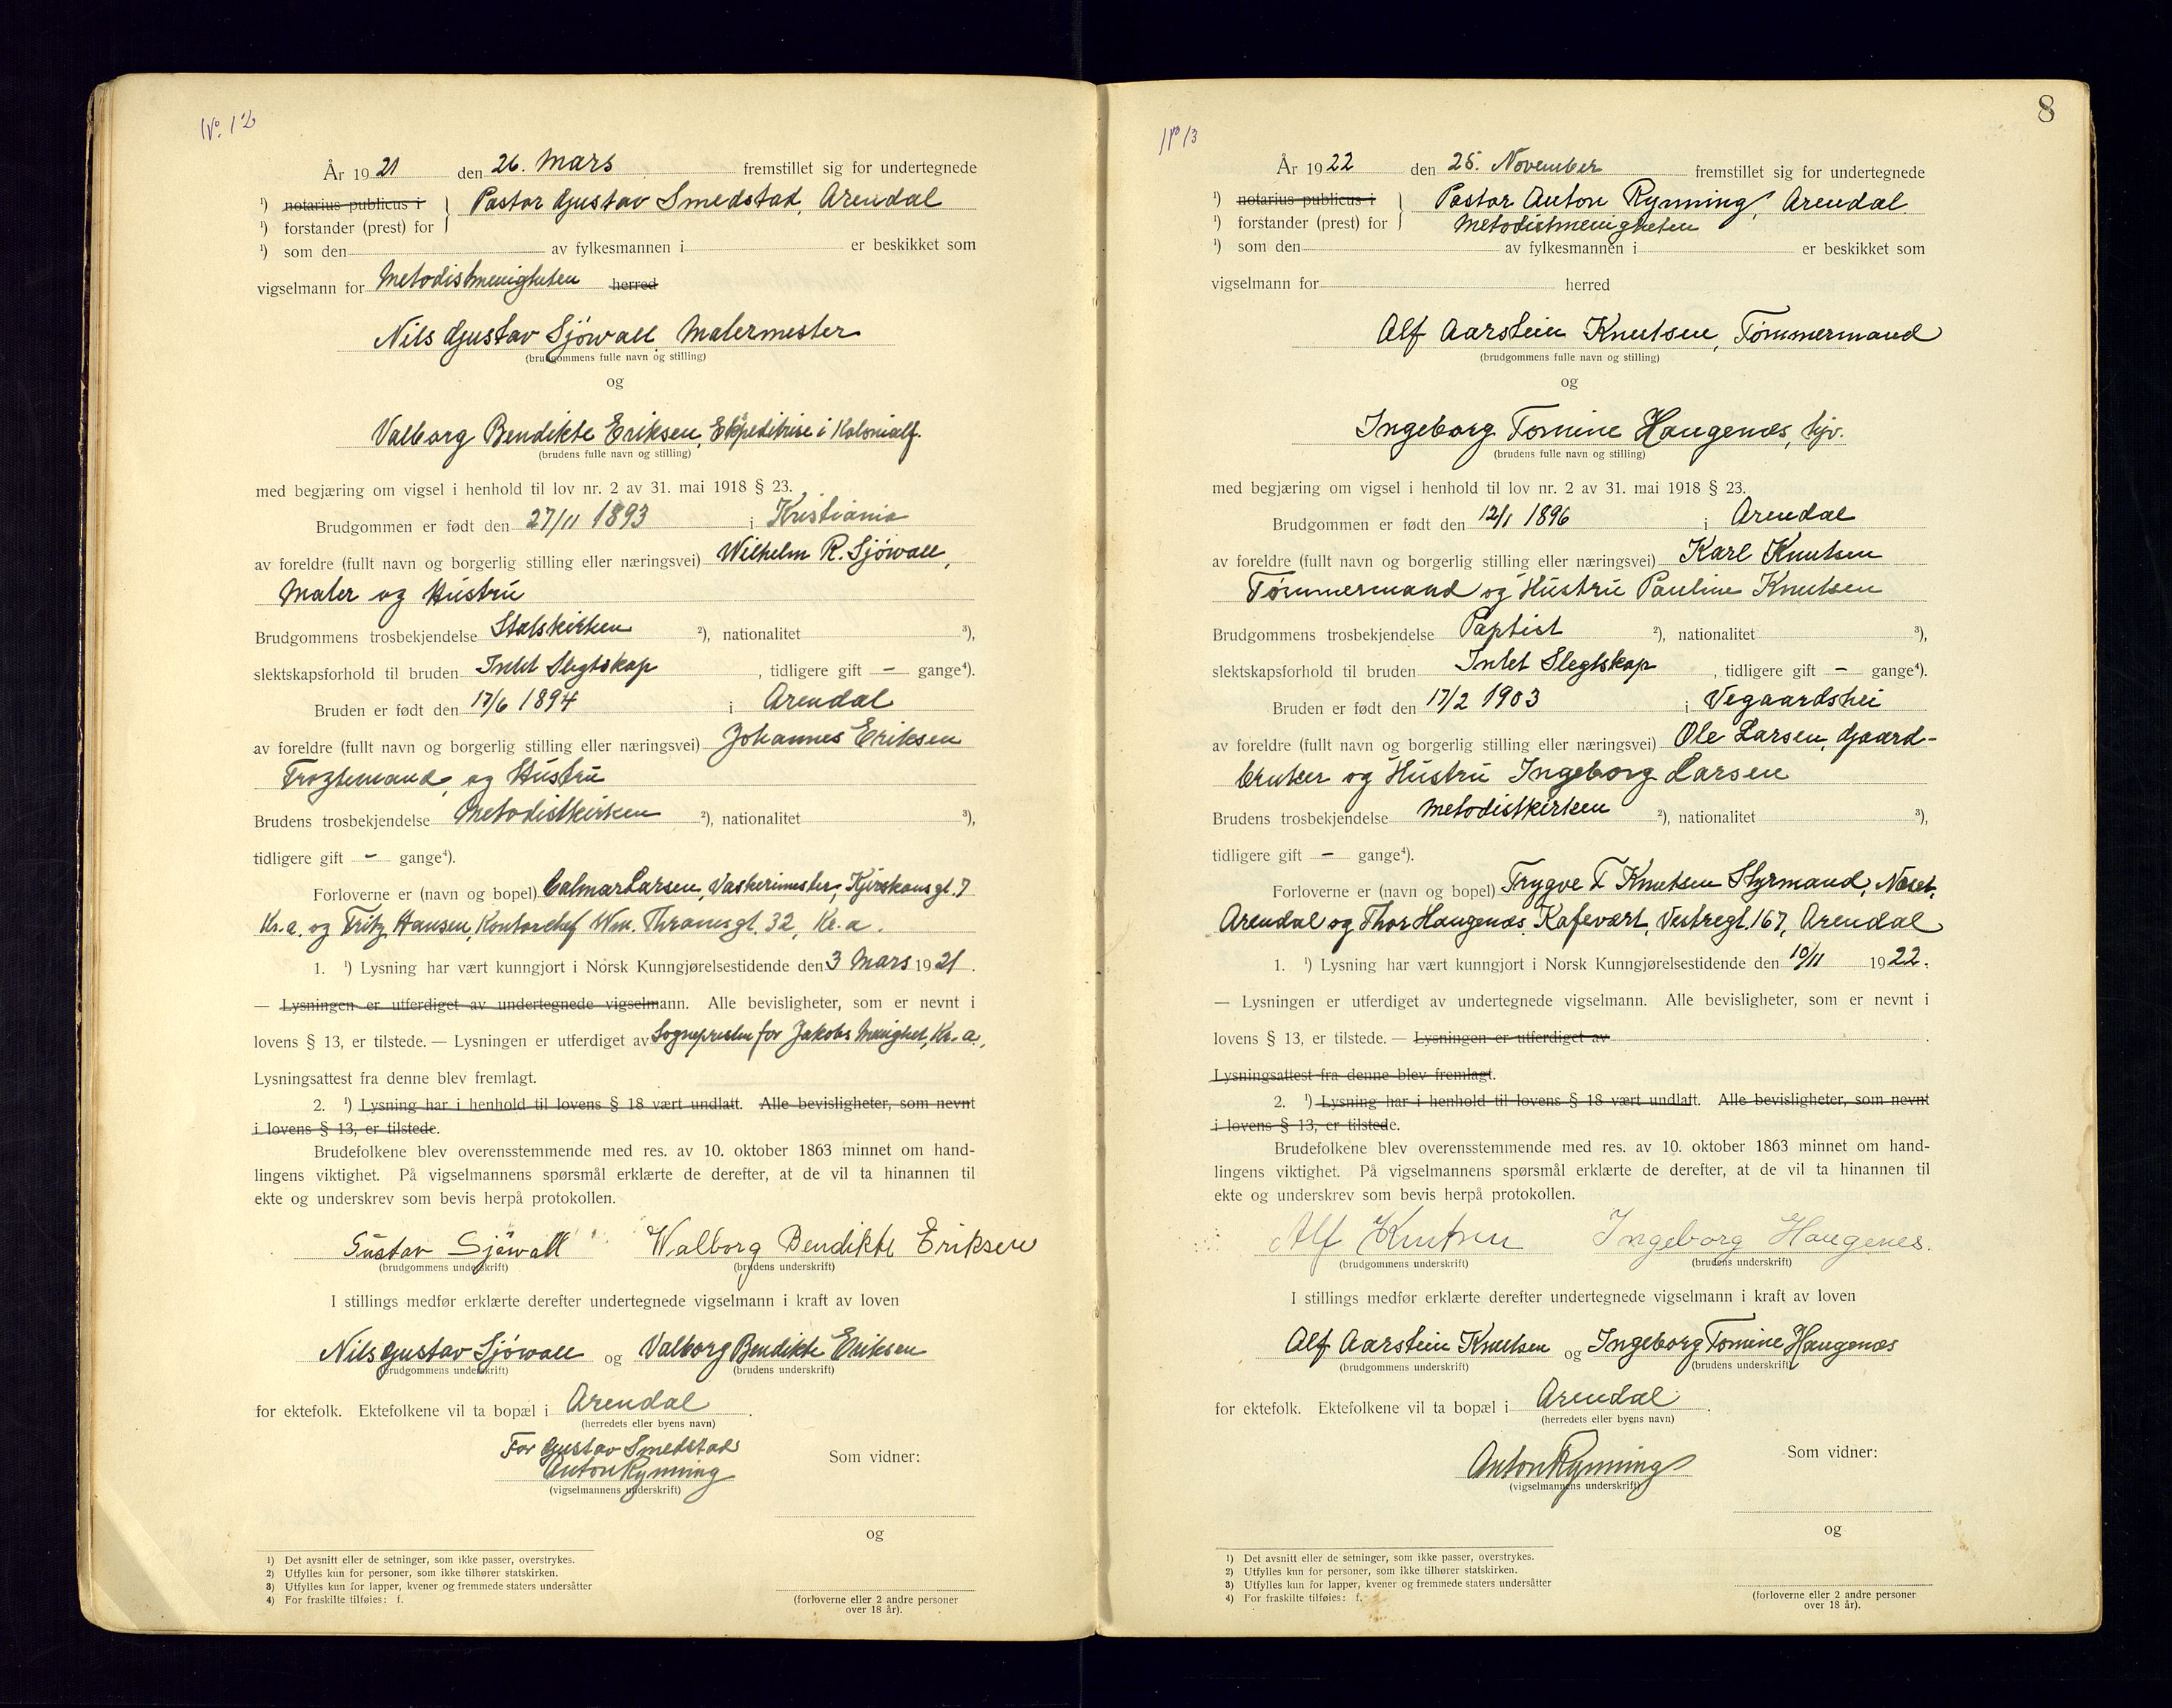 No. 12
År 1921 den 26. Mars fremstillet sig for undertegnede
¹) notarius publicus i
¹) forstander (prest) for } Pastor Gustav Smedstad, Arendal
¹) som den av fylkesmannen i er beskikket som
vigselmann for Metodistmenigheten herred
Nils Gustav Sjöwall, Malermester
(brudgommens fulle navn og stilling)
og
Valborg Bendikte Eriksen, Ekspeditrise i Kolonialf.
(brudens fulle navn og stilling)
med begjæring om vigsel i henhold til lov nr. 2 av 31. mai 1918 § 23.
Brudgommen er født den 27/11 1893 i Kristiania
av foreldre (fullt navn og borgerlig stilling eller næringsvei) Wilhelm R. Sjöwall,
Maler og Hustru
Brudgommens trosbekjendelse Statskirken ²), nationalitet ³),
slektskapsforhold til bruden Intet Slegtskap, tidligere gift — gange⁴).
Bruden er født den 17/6 1894 i Arendal
av foreldre (fullt navn og borgerlig stilling eller næringsvei) Johannes Eriksen
og Hustru
Brudens trosbekjendelse Metodistkirken ²), nationalitet ³),
tidligere gift — gange⁴).
Forloverne er (navn og bopel) Calmar Larsen, Vaskerimester, gt. 7
Kr.a. og Fritz Hansen, Kontorchef Wm. Thranesgt. 32, Kr.a.
1. ¹) Lysning har vært kunngjort i Norsk Kunngjørelsestidende den 3 Mars 1921.
— Lysningen er utferdiget av undertegnede vigselmann. Alle bevisligheter, som er nevnt i
lovens § 13, er tilstede. — Lysningen er utferdiget av Sognepresten for Jakobs Menighet, Kr.a.,
Lysningsattest fra denne blev fremlagt.
2. ¹) Lysning har i henhold til lovens § 18 vært undlatt. Alle bevisligheter, som nevnt
i lovens § 13, er tilstede.
Brudefolkene blev overensstemmende med res. av 10. oktober 1863 minnet om hand-
lingens viktighet. På vigselmannens spørsmål erklærte de derefter, at de vil ta hinannen til
ekte og underskrev som bevis herpå protokollen.
Gustav Sjöwall Walborg Bendikte Eriksen
(brudgommens underskrift) (brudens underskrift)
I stillings medfør erklærte derefter undertegnede vigselmann i kraft av loven
Nils Gustav Sjöwall og Valborg Bendikte Eriksen
(brudgommens underskrift) (brudens underskrift)
for ektefolk. Ektefolkene vil ta bopæl i Arendal.
(herredets eller byens navn)
For Gustav Smedstad
Anton Rynning Som vidner:
(vigselmannens underskrift)
og
¹) Det avsnitt eller de setninger, som ikke passer, overstrykes.
²) Utfylles kun for personer, som ikke tilhører statskirken.
³) Utfylles kun for lapper, kvener og fremmede staters undersåtter
⁴) For fraskilte tilføies: f.
(forloverne eller 2 andre personer
over 18 år).
8
No 13
År 1922 den 25. November fremstillet sig for undertegnede
¹) notarius publicus i
¹) forstander (prest) for } Pastor Anton Rynning, Arendal
Metodistmenigheten
¹) som den av fylkesmannen i er beskikket som
vigselmann for herred
Alf Aarstein Knutsen, Tømmermand
(brudgommens fulle navn og stilling)
og
Ingeborg Tomine Haugenæs, hjv.
(brudens fulle navn og stilling)
med begjæring om vigsel i henhold til lov nr. 2 av 31. mai 1918 § 23.
Brudgommen er født den 12/1 1896 i Arendal
av foreldre (fullt navn og borgerlig stilling eller næringsvei) Karl Knutsen
Tømmermand og Hustru Pauline Knutsen
Brudgommens trosbekjendelse Baptist ²), nationalitet ³),
slektskapsforhold til bruden Intet Slegtskap, tidligere gift — gange⁴).
Bruden er født den 17/2 1903 i Vegaardshei
av foreldre (fullt navn og borgerlig stilling eller næringsvei) Ole Larsen, Gaard-
bruker og Hustru Ingeborg Larsen
Brudens trosbekjendelse Metodistkirken ²), nationalitet ³),
tidligere gift — gange⁴).
Forloverne er (navn og bopel) Trygve T Knutsen Styrmand, Næset,
Arendal og Thor Haugenæs, Kafevært, Vestregt. 167, Arendal
1. ¹) Lysning har vært kunngjort i Norsk Kunngjørelsestidende den 10/11 1922.
— Lysningen er utferdiget av undertegnede vigselmann. Alle bevisligheter, som er nevnt i
lovens § 13, er tilstede. — Lysningen er utferdiget av .
Lysningsattest fra denne blev fremlagt.
2. ¹) Lysning har i henhold til lovens § 18 vært undlatt. Alle bevisligheter, som nevnt
i lovens § 13, er tilstede.
Brudefolkene blev overensstemmende med res. av 10. oktober 1863 minnet om hand-
lingens viktighet. På vigselmannens spørsmål erklærte de derefter, at de vil ta hinannen til
ekte og underskrev som bevis herpå protokollen.
Alf Knutsen Ingeborg Haugenes.
(brudgommens underskrift) (brudens underskrift)
I stillings medfør erklærte derefter undertegnede vigselmann i kraft av loven
Alf Aarstein Knutsen og Ingeborg Tomine Haugenæs
(brudgommens underskrift) (brudens underskrift)
for ektefolk. Ektefolkene vil ta bopæl i Arendal.
(herredets eller byens navn)
Anton Rynning Som vidner:
(vigselmannens underskrift)
og
¹) Det avsnitt eller de setninger, som ikke passer, overstrykes.
²) Utfylles kun for personer, som ikke tilhører statskirken.
³) Utfylles kun for lapper, kvener og fremmede staters undersåtter
⁴) For fraskilte tilføies: f.
(forloverne eller 2 andre personer
over 18 år).